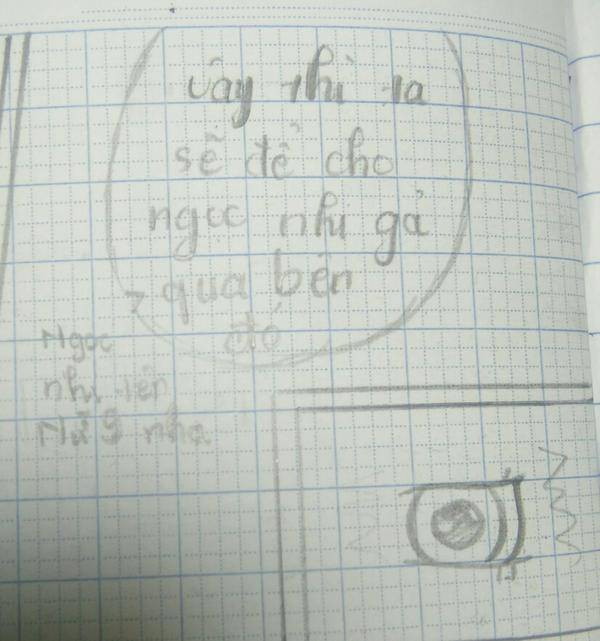 vậy thì ta
sẽ để cho
ngọc nhi gả
qua bên
đó
Ngọc
nhi tên
nhà